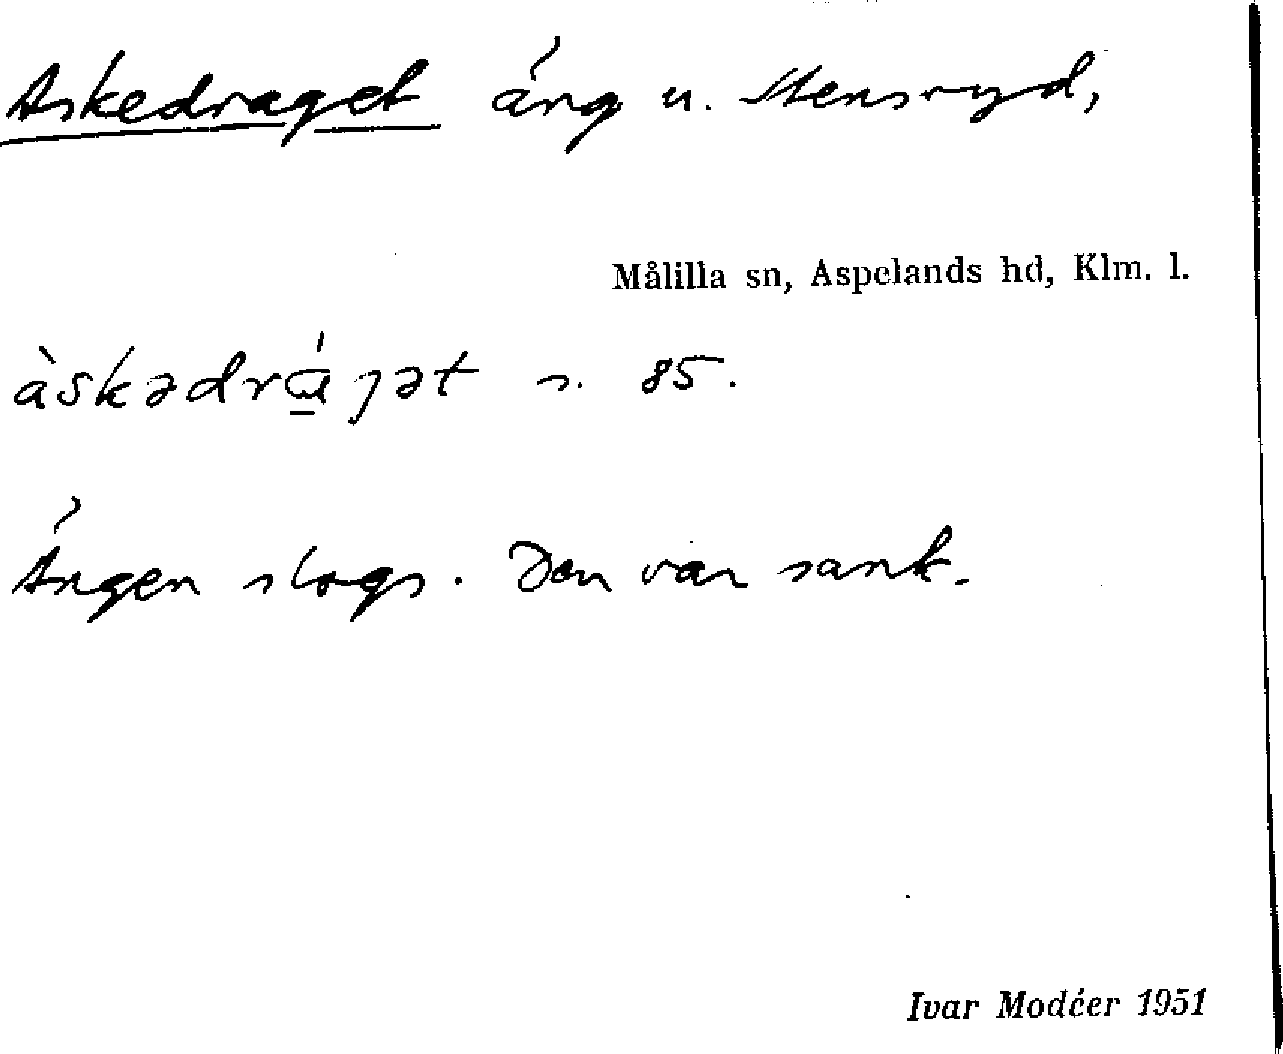 Askedraget äng u. Stensryd,
Målilla sn, Aspelands hd, Klm. l.
àskədrɑ́ɡət s. 85.
Ängen slogs. Den var sank.
Ivar Modéer 1951